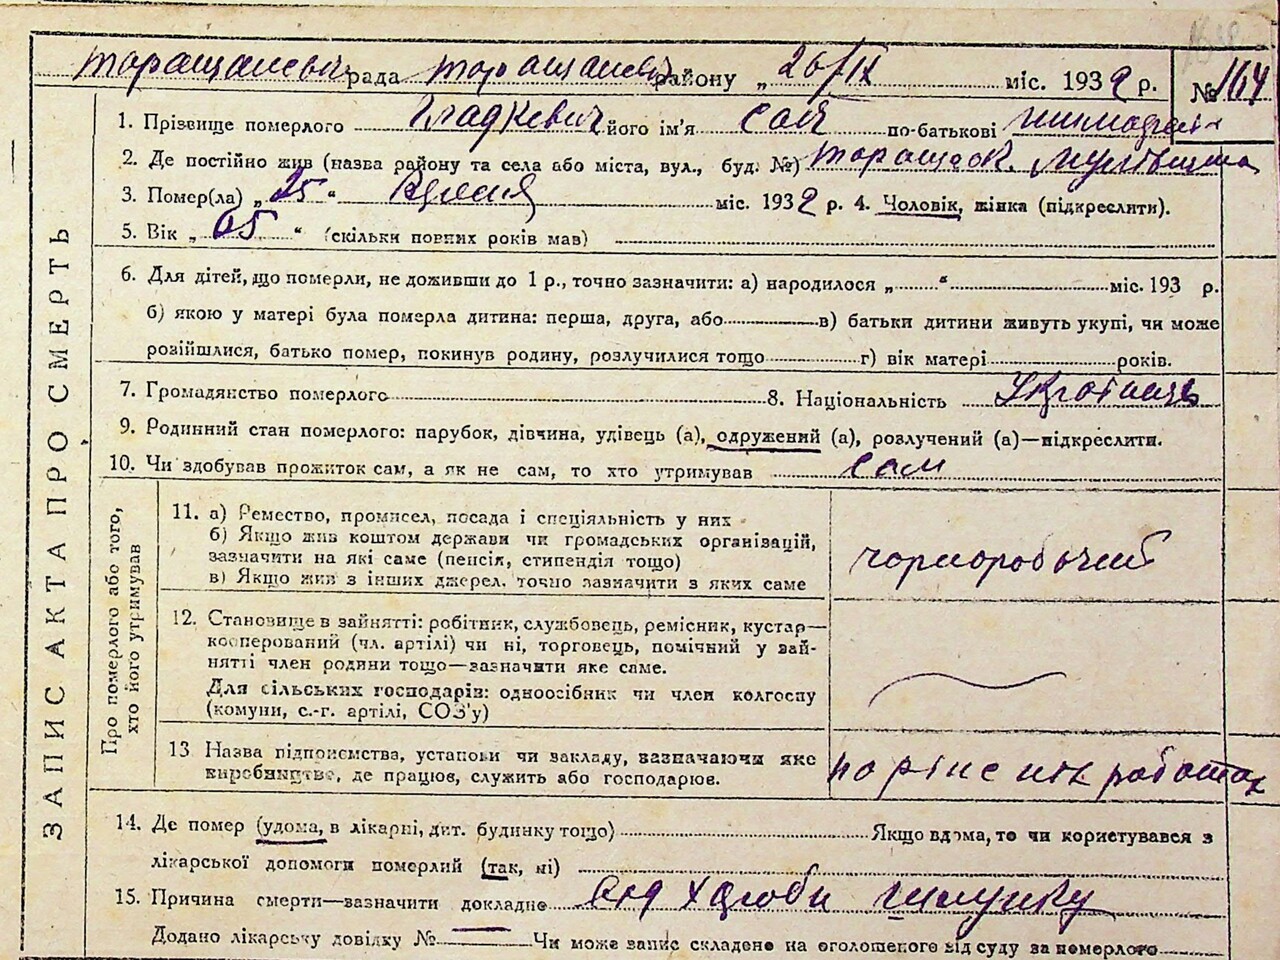 Таращанськ рада Таращанськ району „26/IX міс. 1932 р. № 164
ЗАПИС АКТА ПРО СМЕРТЬ
1. Прізвище померлого Гладкевич його ім'я по-батькові
2. Де постійно жив (назва району та села або міста, вул., буд. №)
3. Помер(ла) „25“ міс. 1932 р. 4. Чоловік, жінка (підкреслити).
5. Вік „65“ (скільки повних років мав)
6. Для дітей, що померли, не доживши до 1 р., точно зазначити: а) народилося „ “ міс. 193 р.
б) якою у матері була померла дитина: перша, друга, або в) батьки дитини живуть укупі, чи може
розійшлися, батько помер, покинув родину, розлучилися тощо г) вік матері років.
7. Громадянство померлого 8. Національність Українець
9. Родинний стан померлого: парубок, дівчина, удівець (а), одружений (а), розлучений (а)—підкреслити.
10. Чи здобував прожиток сам, а як не сам, то хто утримував сам
Про померлого або того,
хто його утримував
11. а) Ремество, промисел, посада і спеціяльність у них
б) Якщо жив коштом держави чи громадських організацій,
зазначити на які саме (пенсія, стипендія тощо)
в) Якщо жив з інших джерел, точно зазначити з яких саме
чорноробочий
12. Становище в зайнятті: робітник, службовець, ремісник, кустар—
кооперований (чл. артілі) чи ні, торговець, помічний у зай-
нятті член родини тощо—зазначити яке саме.
Для сільських господарів: одноосібник чи член колгоспу
(комуни, с.-г. артілі, СОЗ'у)
13 Назва підприємства, установи чи закладу, зазначаючи яке
виробництво, де працює, служить або господарює.
по різне них роботах
14. Де помер (удома, в лікарні, дит. будинку тощо) Якщо вдома, то чи користувався з
лікарської допомоги померлий (так, ні)
15. Причина смерти—зазначити докладно від хвороби шлунку
Додано лікарську довідку № Чи може запис складено на оголошеного від суду за померлого